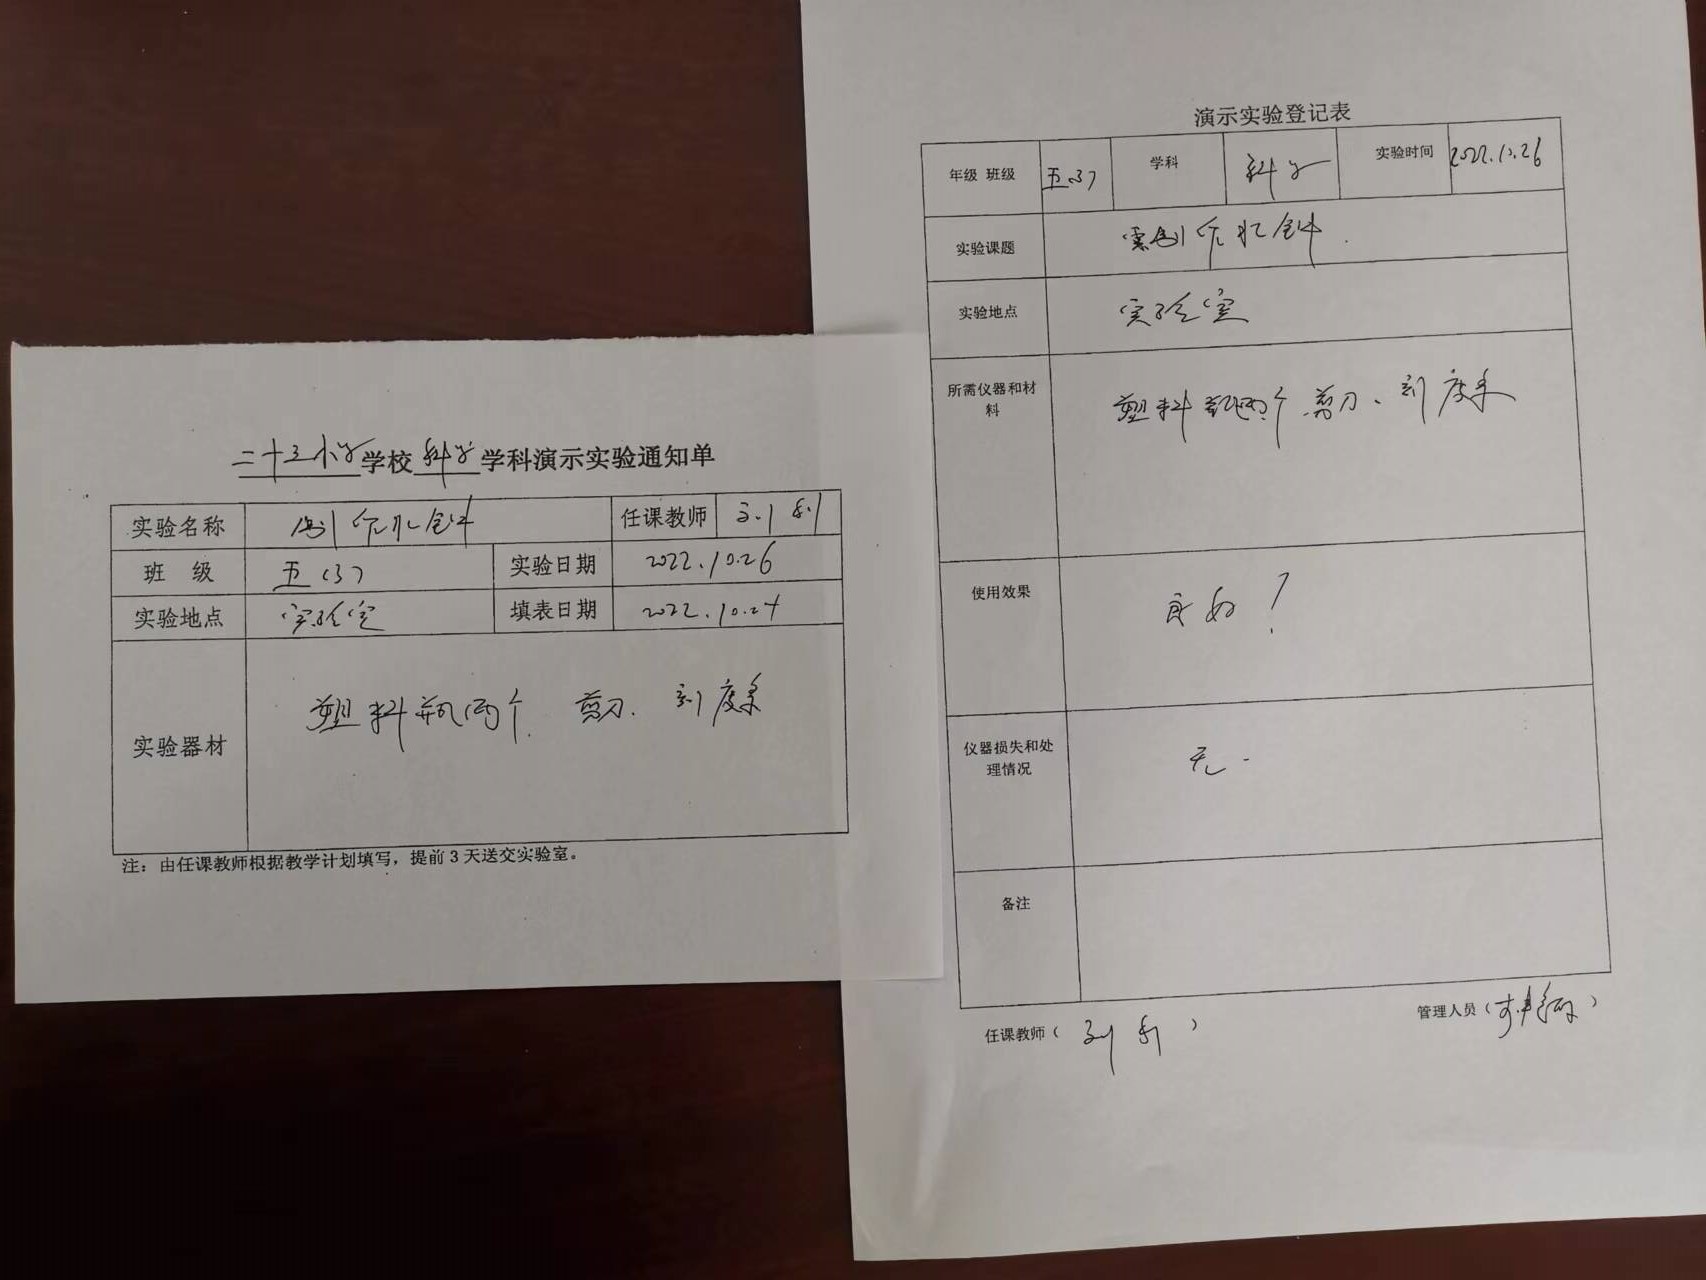 二十三小学学校科学学科演示实验通知单
实验名称 制作水钟 任课教师
班 级 五(3) 实验日期 2022.10.26
实验地点 实验室 填表日期 2022.10.24
实验器材 塑料瓶两个 剪刀. 刻度条
注：由任课教师根据教学计划填写，提前3天送交实验室。
演示实验登记表
年级 班级 五(3) 学科 科学 实验时间 2022.10.26
实验课题 制作水钟.
实验地点 实验室
所需仪器和材料 塑料瓶两个 剪刀、刻度条
使用效果 良好!
仪器损失和处理情况 无.
备注
任课教师（ ）
管理人员（ ）